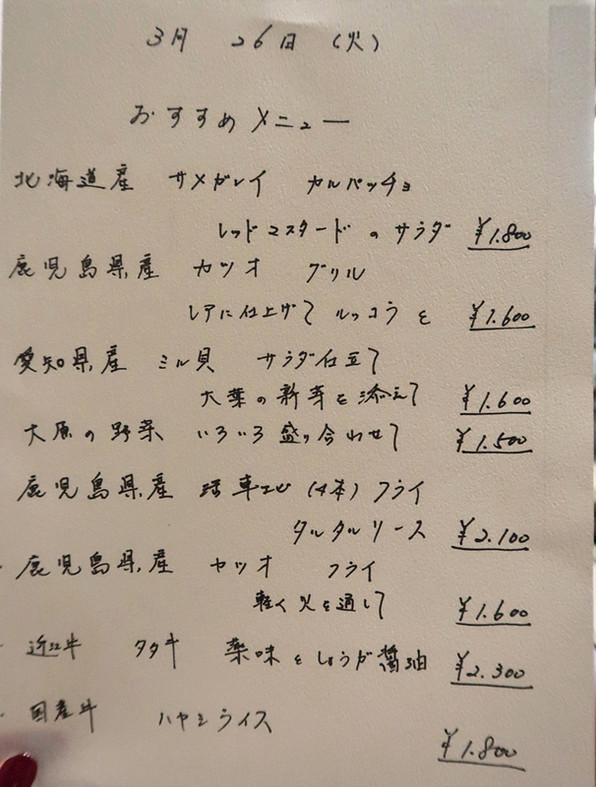 3月 26日 (火)
おすすめメニュー
北海道産 サメガレイ カルパッチョ
レッドマスタードのサラダ ¥1.800
鹿児島県産 カツオ グリル
レアに仕上げて ルッコラと ¥1.600
愛知県産 ミル貝 サラダ仕立て
大葉の新芽を添えて ¥1.600
大原の野菜 いろいろ盛り合わせて ¥1.500
鹿児島県産 活車エビ (4本) フライ
タルタルソース ¥2.100
鹿児島県産 カツオ フライ
軽く火を通して ¥1.600
近江牛 タタキ 薬味としょうが醤油 ¥2.300
国産牛 ハヤシライス
¥1.800